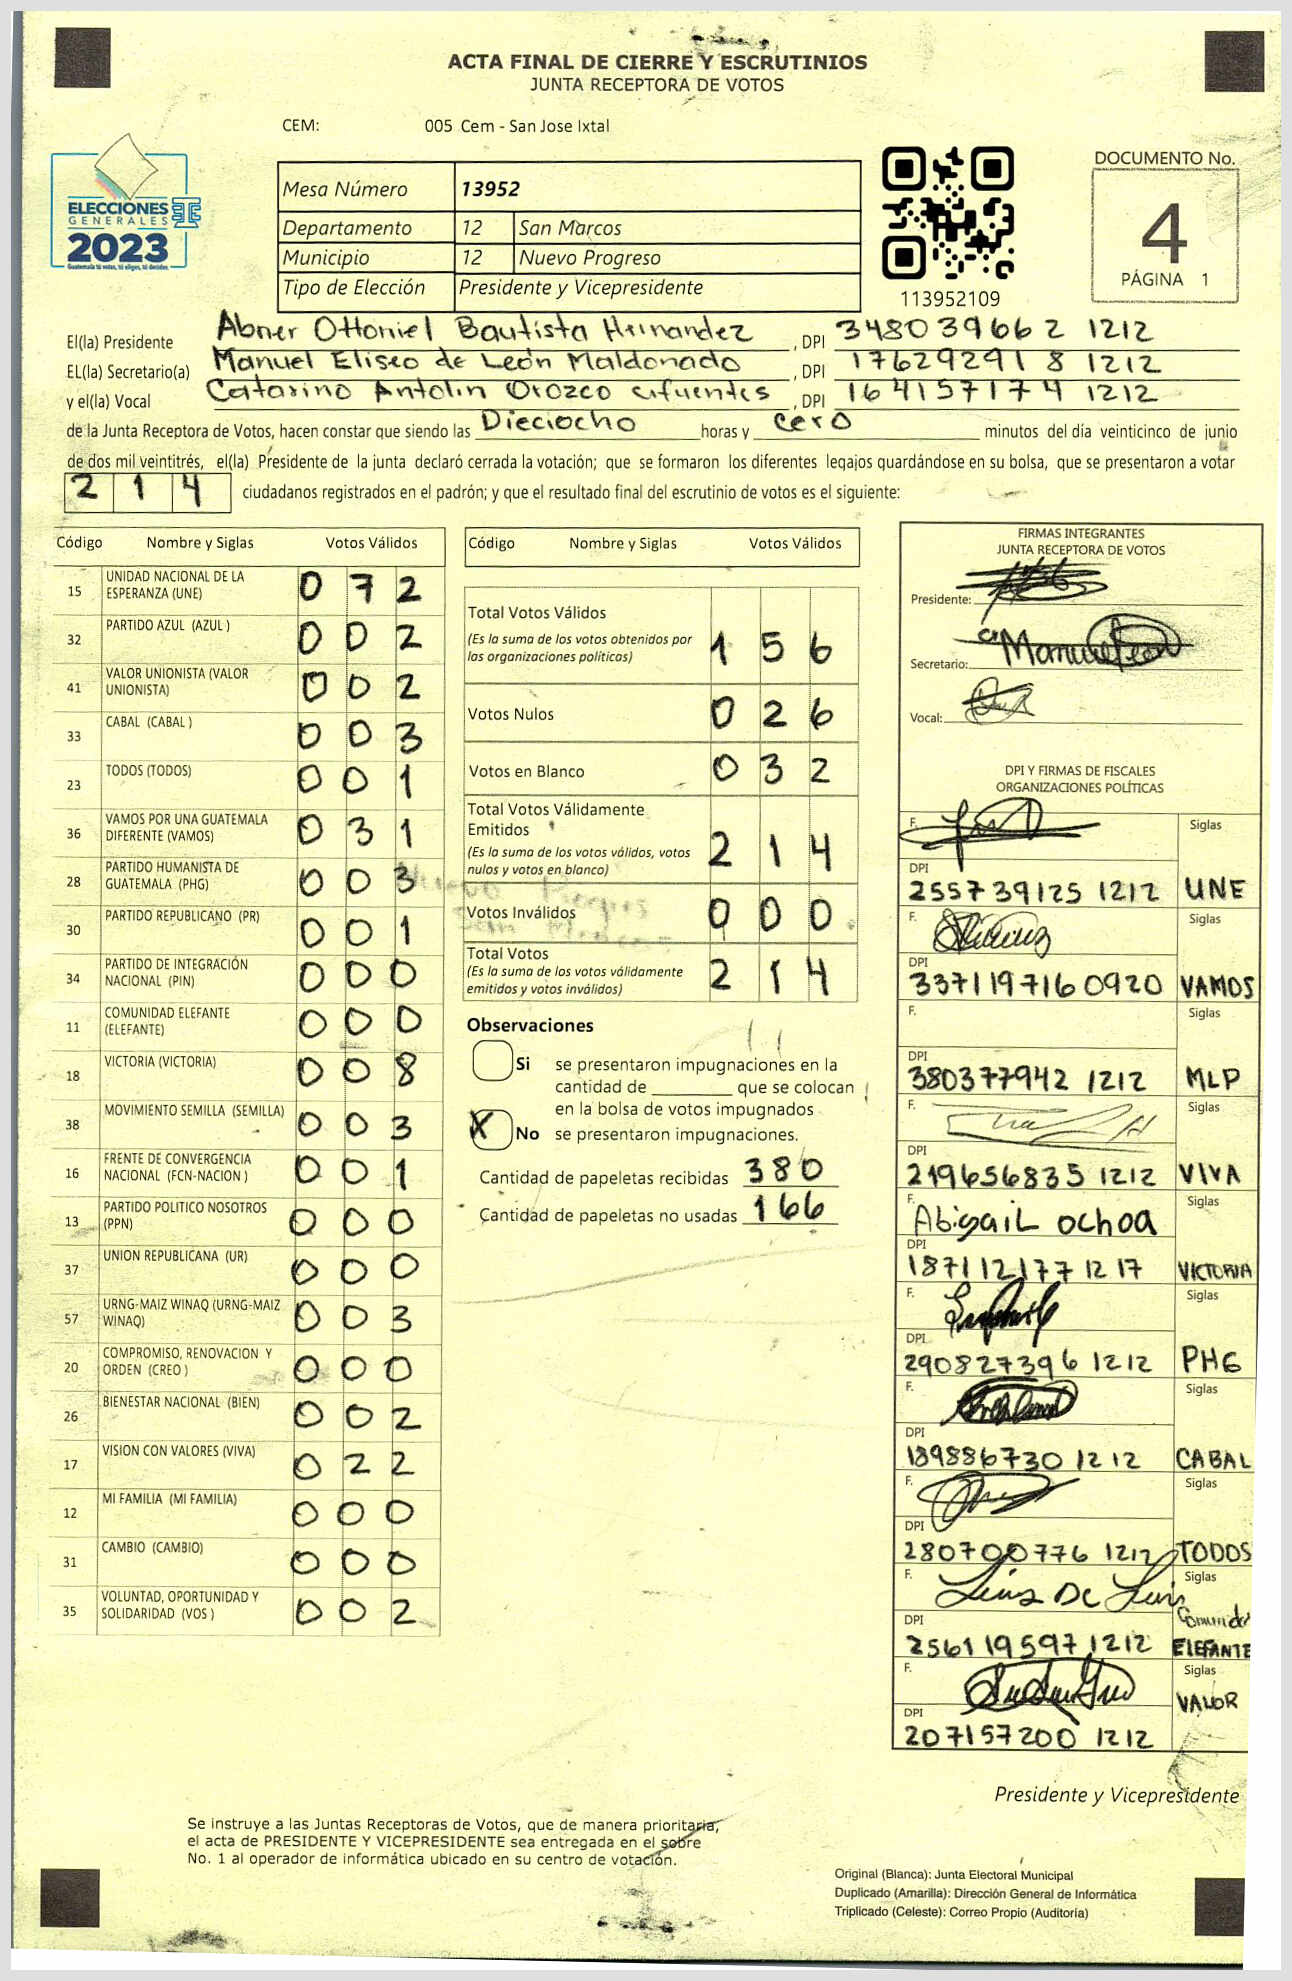 ACTA FINAL DE CIERRE Y ESCRUTINIOS
JUNTA RECEPTORA DE VOTOS
CEM: 005 Cem - San Jose Ixtal
ELECCIONES
GENERALES
2023
Guatemala tú votas, tú eliges, tú decides.
Mesa Número 13952
Departamento 12 San Marcos
Municipio 12 Nuevo Progreso
Tipo de Elección Presidente y Vicepresidente
113952109
DOCUMENTO No.
4
PÁGINA 1
El(la) Presidente Abner Ottoniel Bautista Hernandez, DPI 348039662 1212
EL(la) Secretario(a) Manuel Eliseo de León Maldonado, DPI 176292918 1212
y el(la) Vocal Catarino Antolin Orozco Cifuentes, DPI 164157174 1212
de la Junta Receptora de Votos, hacen constar que siendo las Dieciocho horas y cero minutos del día veinticinco de junio
de dos mil veintitrés, el(la) Presidente de la junta declaró cerrada la votación; que se formaron los diferentes legajos guardándose en su bolsa, que se presentaron a votar
2 1 4 ciudadanos registrados en el padrón; y que el resultado final del escrutinio de votos es el siguiente:
Código Nombre y Siglas Votos Válidos
15 UNIDAD NACIONAL DE LA ESPERANZA (UNE) 0 7 2
32 PARTIDO AZUL (AZUL ) 0 0 2
41 VALOR UNIONISTA (VALOR UNIONISTA) 0 0 2
33 CABAL (CABAL ) 0 0 3
23 TODOS (TODOS) 0 0 1
36 VAMOS POR UNA GUATEMALA DIFERENTE (VAMOS) 0 3 1
28 PARTIDO HUMANISTA DE GUATEMALA (PHG) 0 0 3
30 PARTIDO REPUBLICANO (PR) 0 0 1
34 PARTIDO DE INTEGRACIÓN NACIONAL (PIN) 0 0 0
11 COMUNIDAD ELEFANTE (ELEFANTE) 0 0 0
18 VICTORIA (VICTORIA) 0 0 8
38 MOVIMIENTO SEMILLA (SEMILLA) 0 0 3
16 FRENTE DE CONVERGENCIA NACIONAL (FCN-NACION ) 0 0 1
13 PARTIDO POLITICO NOSOTROS (PPN) 0 0 0
37 UNION REPUBLICANA (UR) 0 0 0
57 URNG-MAIZ WINAQ (URNG-MAIZ WINAQ) 0 0 3
20 COMPROMISO, RENOVACION Y ORDEN (CREO ) 0 0 0
26 BIENESTAR NACIONAL (BIEN) 0 0 2
17 VISION CON VALORES (VIVA) 0 2 2
12 MI FAMILIA (MI FAMILIA) 0 0 0
31 CAMBIO (CAMBIO) 0 0 0
35 VOLUNTAD, OPORTUNIDAD Y SOLIDARIDAD (VOS ) 0 0 2
Código Nombre y Siglas Votos Válidos
Total Votos Válidos
(Es la suma de los votos obtenidos por
las organizaciones políticas) 1 5 6
Votos Nulos 0 2 6
Votos en Blanco 0 3 2
Total Votos Válidamente
Emitidos
(Es la suma de los votos válidos, votos
nulos y votos en blanco) 2 1 4
Votos Inválidos 0 0 0
Total Votos
(Es la suma de los votos válidamente
emitidos y votos inválidos) 2 1 4
Observaciones
Si se presentaron impugnaciones en la
cantidad de ________ que se colocan
en la bolsa de votos impugnados
X No se presentaron impugnaciones.
Cantidad de papeletas recibidas 380
Cantidad de papeletas no usadas 166
FIRMAS INTEGRANTES
JUNTA RECEPTORA DE VOTOS
Presidente:
Secretario:
Vocal:
DPI Y FIRMAS DE FISCALES
ORGANIZACIONES POLÍTICAS
F. Siglas
DPI
255739125 1212 UNE
F. Siglas
DPI
337119716 0920 VAMOS
F. Siglas
DPI
380377942 1212 MLP
F. Siglas
DPI
219656835 1212 VIVA
F. Abigail Ochoa Siglas
DPI
187112177 1217 VICTORIA
F. Siglas
DPI
290827396 1212 PHG
F. Siglas
DPI
189886730 1212 CABAL
F. Siglas
DPI
280700776 1212 TODOS
F. Siglas
DPI
256119597 1212 ELEFANTE
F. Siglas
DPI VALOR
207157200 1212
Presidente y Vicepresidente
Se instruye a las Juntas Receptoras de Votos, que de manera prioritaria,
el acta de PRESIDENTE Y VICEPRESIDENTE sea entregada en el sobre
No. 1 al operador de informática ubicado en su centro de votación.
Original (Blanca): Junta Electoral Municipal
Duplicado (Amarilla): Dirección General de Informática
Triplicado (Celeste): Correo Propio (Auditoría)